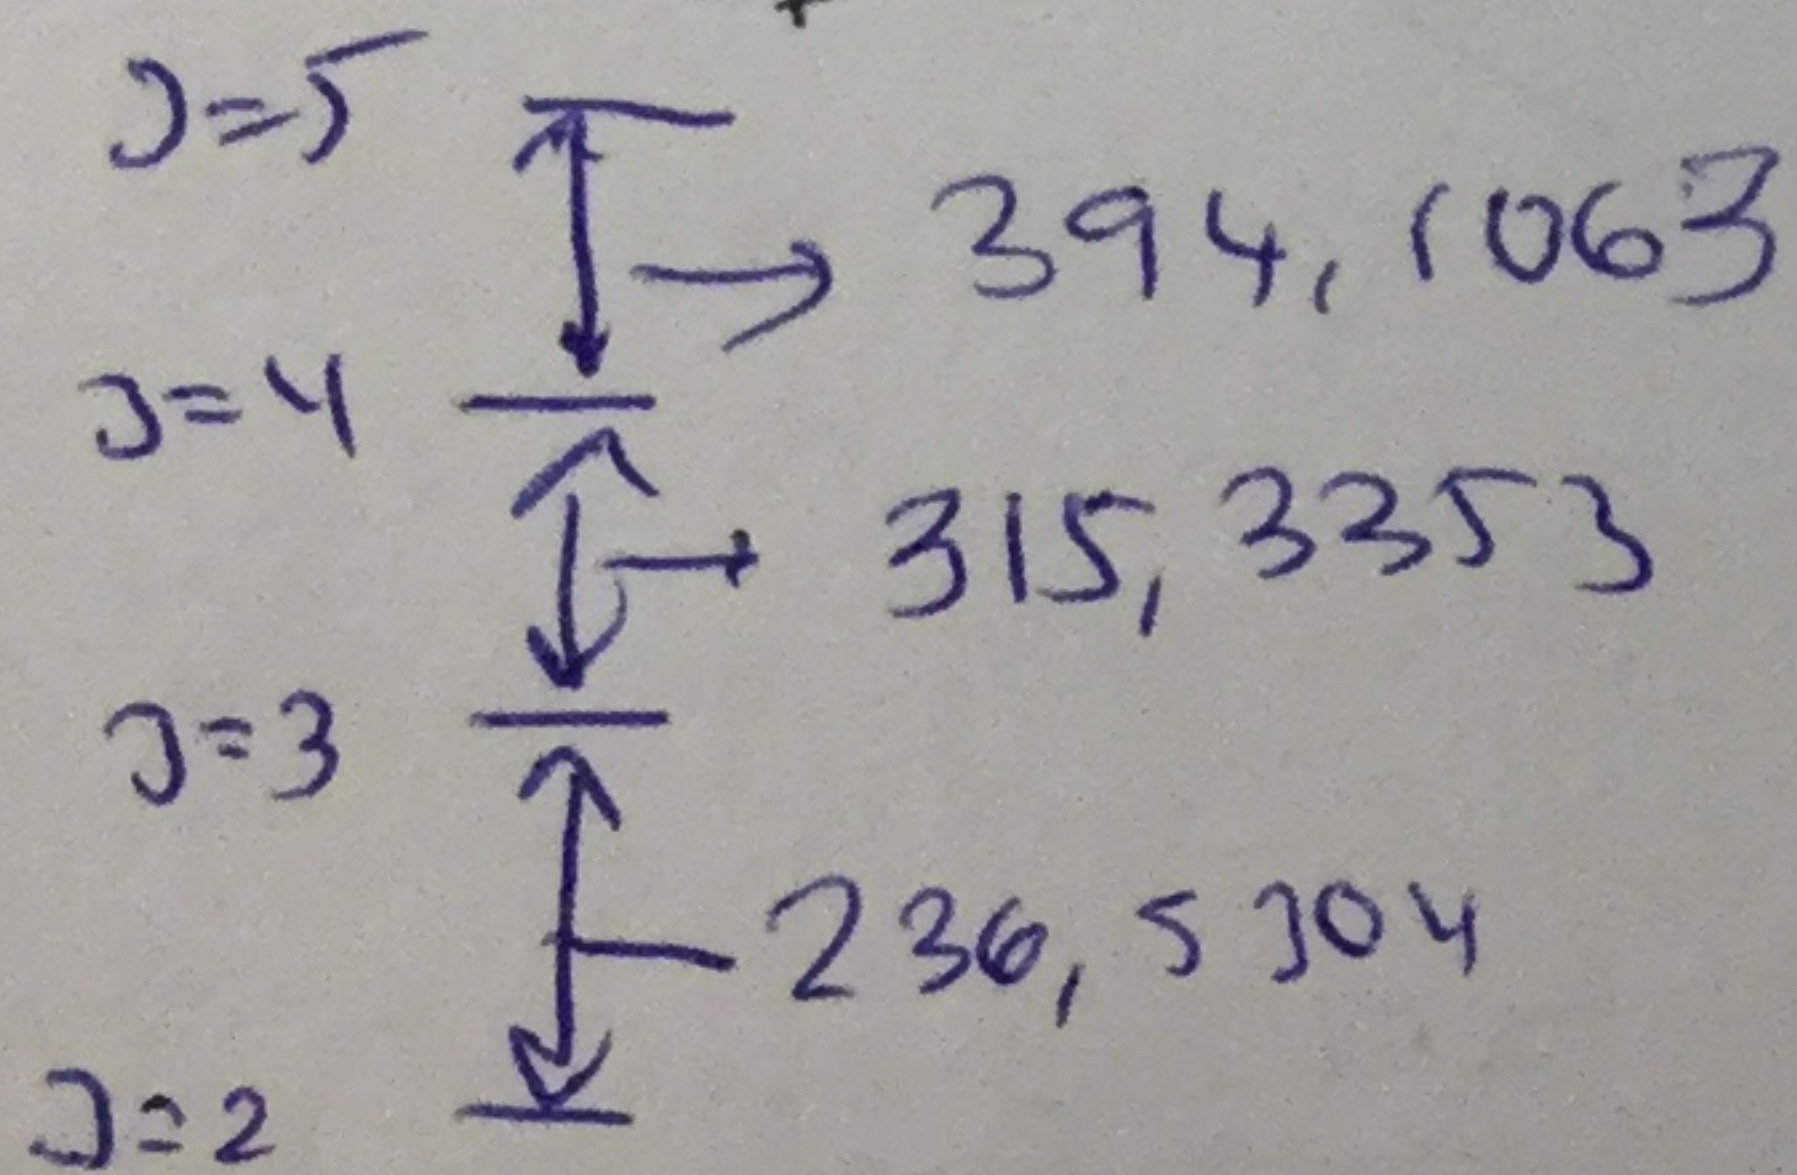 J=5
394,1063
J=4
315,3353
J=3
236,5304
J=2